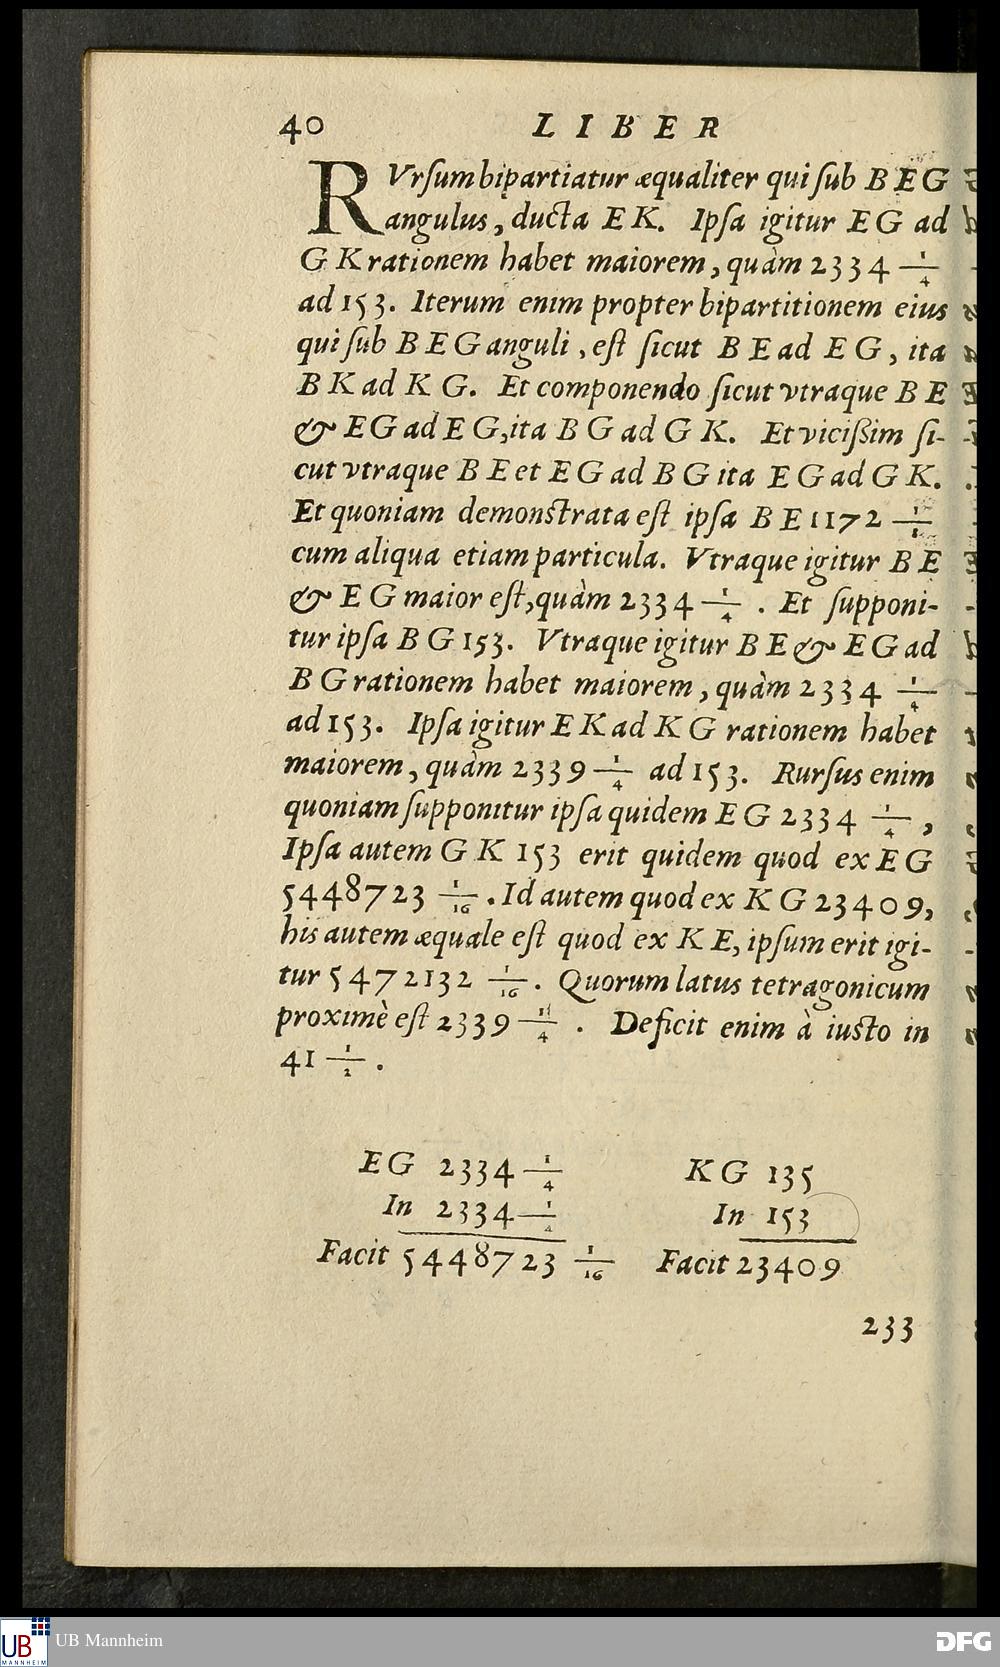 40 LIBER
RVrſum bipartiatur æqualiter qui ſub B E G
angulus, ducta E K. Ipſa igitur E G ad
G K rationem habet maiorem, quàm 2334 1/4
ad 153. Iterum enim propter bipartitionem eius
qui ſub B E G anguli, eſt ſicut B E ad E G, ita
B K ad K G. Et componendo ſicut vtraque B E
& E G ad E G, ita B G ad G K. Et vicißim ſi-
cut vtraque B E et E G ad B G ita E G ad G K.
Et quoniam demonſtrata eſt ipſa B E 1172 1/8
cum aliqua etiam particula. Vtraque igitur B E
& E G maior eſt, quàm 2334 1/4. Et ſupponi-
tur ipſa B G 153. Vtraque igitur B E & E G ad
B G rationem habet maiorem, quàm 2334 1/4
ad 153. Ipſa igitur E K ad K G rationem habet
maiorem, quàm 2339 1/4 ad 153. Rurſus enim
quoniam ſupponitur ipſa quidem E G 2334 1/4,
Ipſa autem G K 153 erit quidem quod ex E G
5448723 1/16. Id autem quod ex K G 23409,
his autem æquale eſt quod ex K E, ipſum erit igi-
tur 5472132 1/16. Quorum latus tetragonicum
proximè eſt 2339 1/4. Deficit enim à iuſto in
41 1/2.
E G 2334 1/4 K G 135
In 2334 1/4 In 153
Facit 5448723 1/16 Facit 23409
233
UB MANNHEIM UB Mannheim DFG